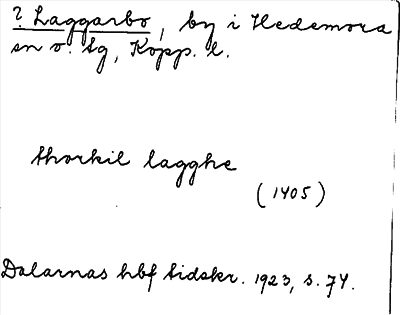 ? Laggarbo, by i Hedemora
sn o. tg, Kopp. l.
thorkil lagghe
(1405)
Dalarnas hbf tidskr. 1923, s. 74.